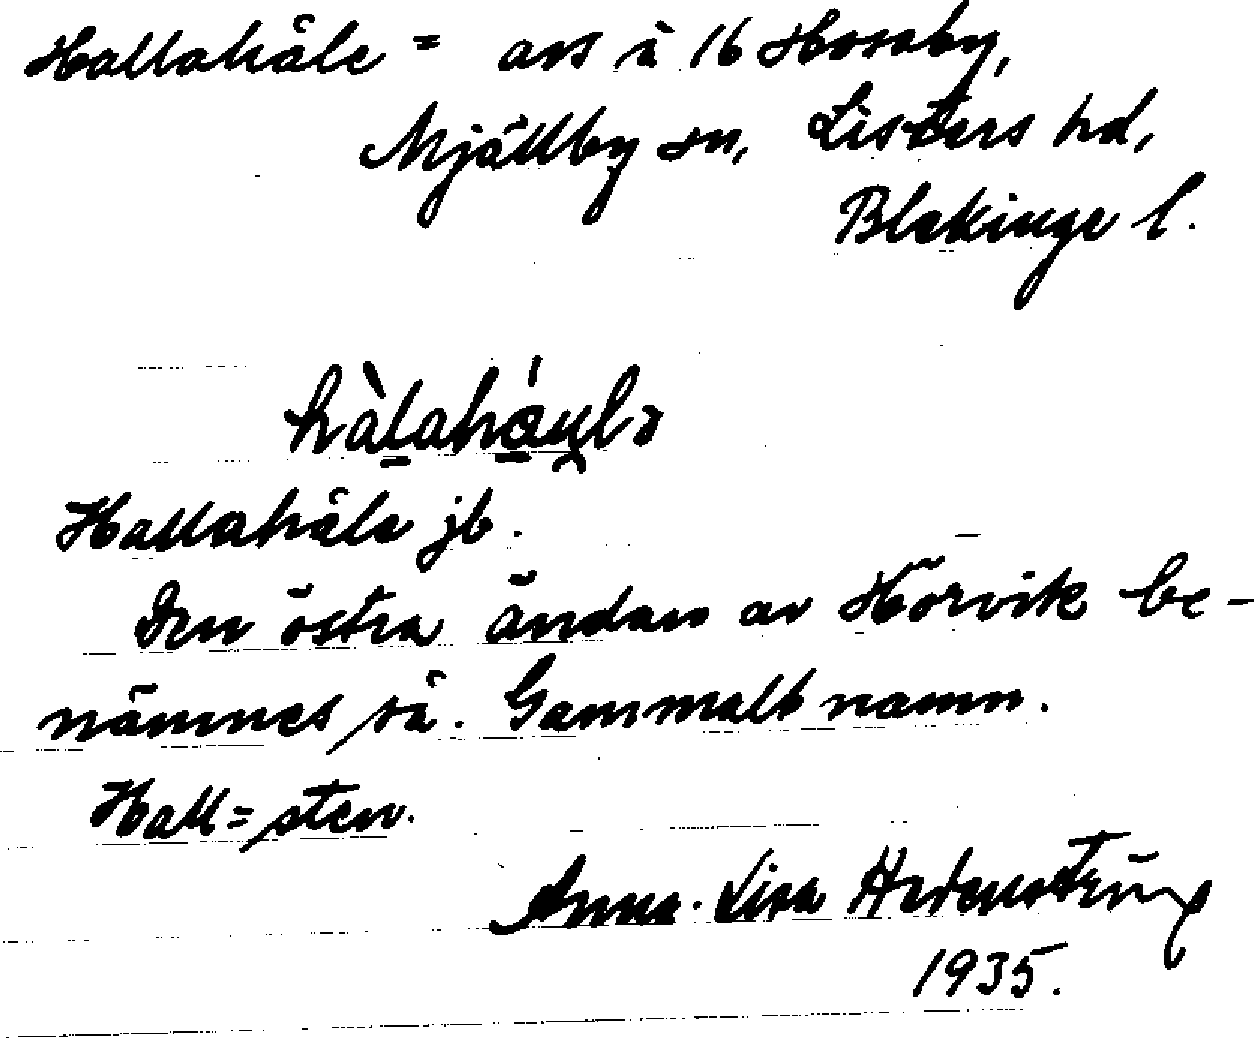 Hallahåle = avs å 16 Hosaby,
Mjällby sn, Listers hd,
Blekinge l.
Hallahåle jb.
Den östra ändan av Hörvik be-
nämnes så. Gammalt namn.
Hall = sten.
Anna-Lisa
1935.